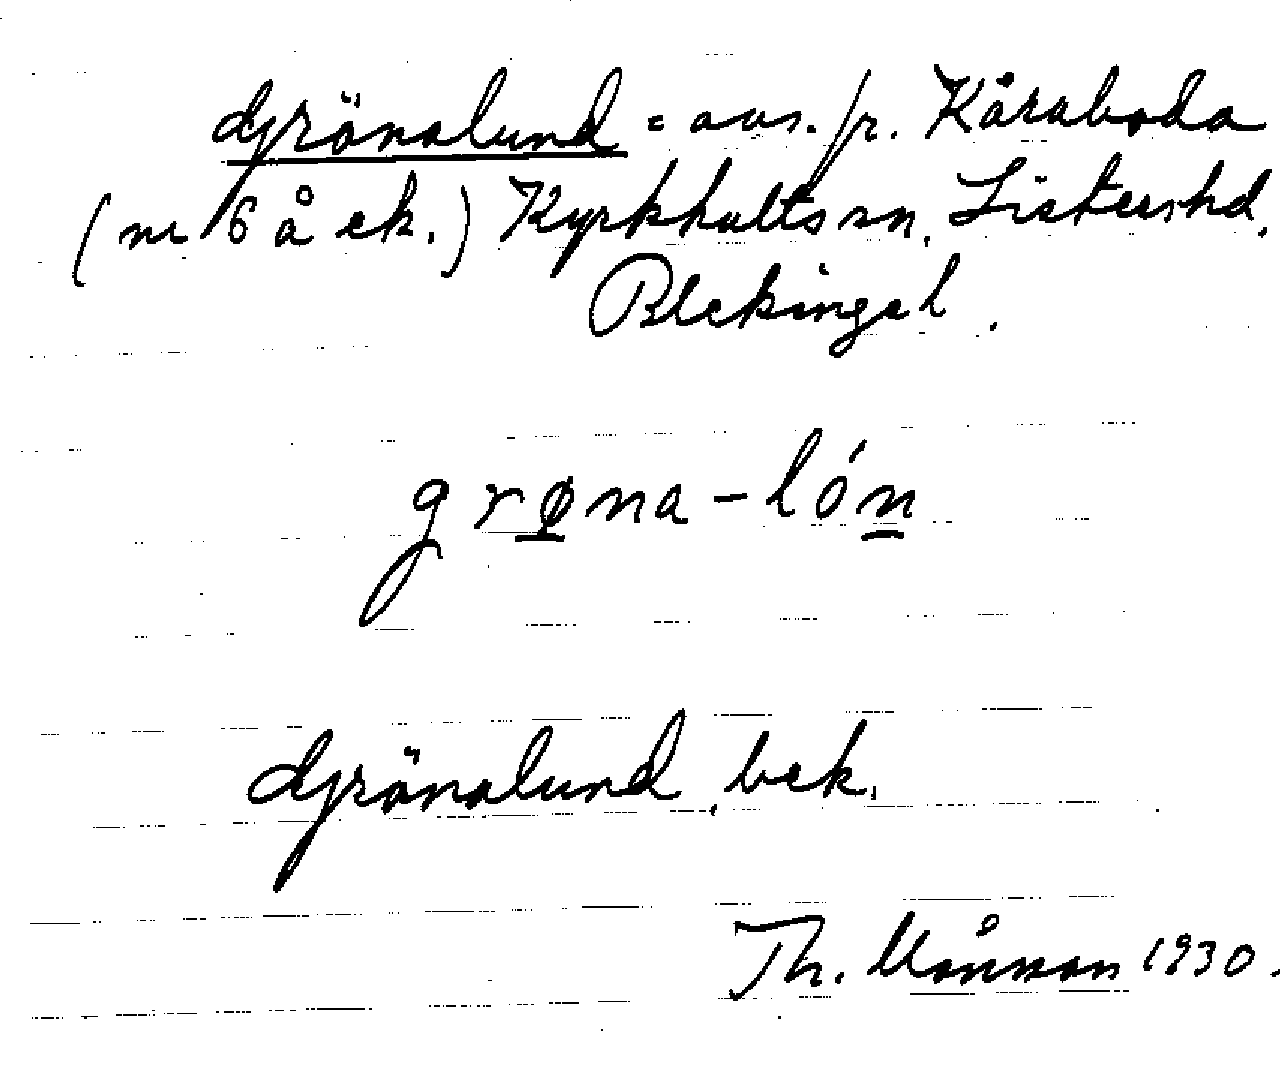 Grönalund = avs. fr. Kåraboda
(nr 6 å ek.) Kyrkhults sn, Listers hd.
Blekinge l.
grøna-lón
Grönalund, bek.
Th. Månsson 1930.